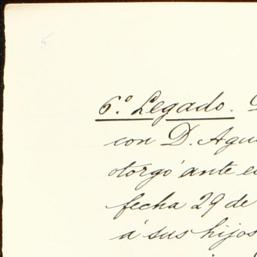 5
6.º Legado.
con D. Agu
otorgó ante e
fecha 29 de
á sus hijos